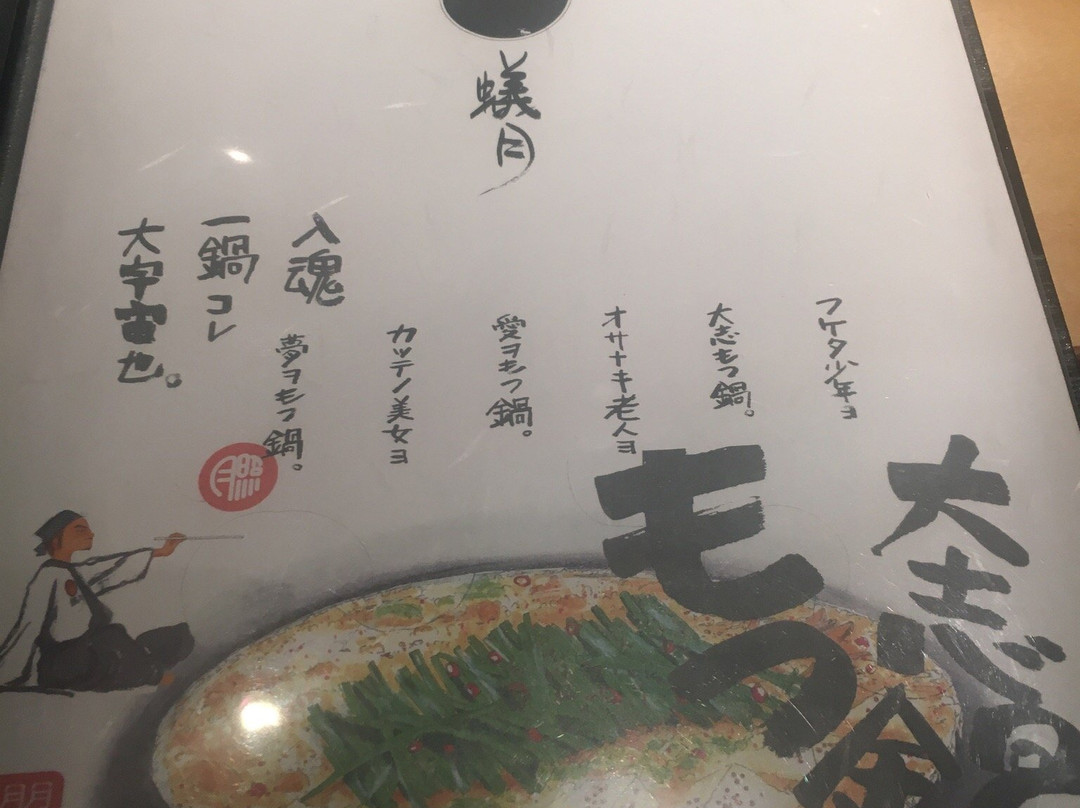 蟻月
フケタ少年ヨ
大志もつ鍋。
オサナキ老人ヨ
愛ヲもつ鍋。
カッテノ美女ヨ
夢ヲもつ鍋。
入魂
一鍋コレ
大宇宙也。
大志
もつ